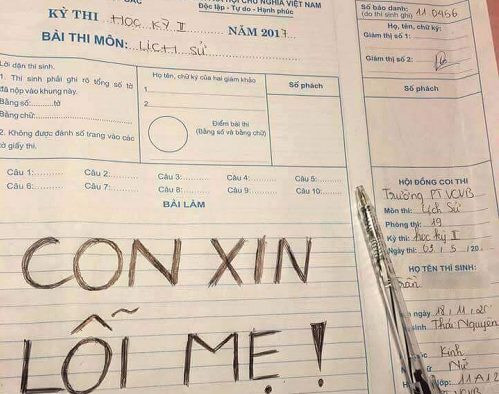 HỘI CHỦ NGHĨA VIỆT NAM
Độc lập - Tự do - Hạnh phúc
KỲ THI HỌC KỲ II NĂM 2017
BÀI THI MÔN: LỊCH SỬ
Lời dặn thí sinh.
1. Thí sinh phải ghi rõ tổng số tờ
đã nộp vào khung này.
Bằng số:..........tờ
Bằng chữ:..........
2. Không được đánh số trang vào các
tờ giấy thi.
Họ tên, chữ ký của hai giám khảo
1
2
Điểm bài thi
(Bằng số và bằng chữ)
Số phách
Câu 1:.......... Câu 2:.......... Câu 3:.......... Câu 4:.......... Câu 5:..........
Câu 6:.......... Câu 7:.......... Câu 8:.......... Câu 9:.......... Câu 10:..........
BÀI LÀM
CON XIN
LỖI MẸ!
Số báo danh:
(do thí sinh ghi) 110456
Họ, tên, chữ ký:
Giám thị số 1:
Giám thị số 2:
Số phách
HỘI ĐỒNG COI THI
Trường PTVCVB
Môn thi: Lịch Sử
Phòng thi: 19
Kỳ thi: học kỳ II
Ngày thi: 03 / 5 / 20
HỌ TÊN THÍ SINH:
Trần
ngày 18 / 11 / 20
sinh Thái Nguyên
Kinh
Nữ
lớp: 11A12